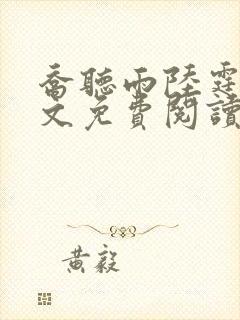 喬聽雨陸霆
文免費閱讀
黃毅